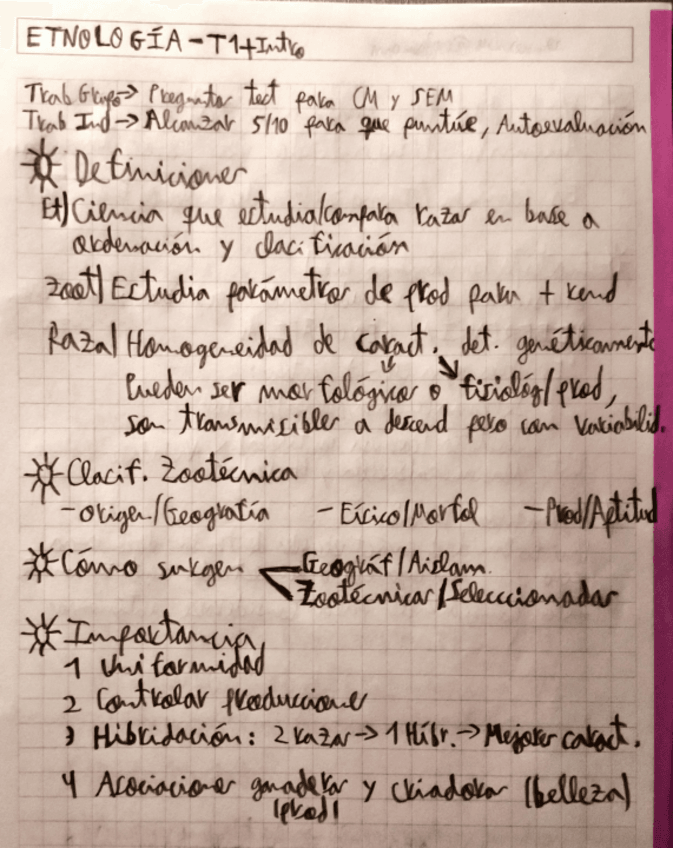 ETNOLOGÍA - T1 + Intro
Trab Grupo → Preguntas test para CM y SEM
Trab Ind → Alcanzar 5/10 para que puntúe, Autoevaluación
Definiciones
Et) Ciencia que estudia/compara razas en base a
ordenación y clasificación
Zoot) Estudia parámetros de prod para + rend
Raza) Homogeneidad de caract. det. genéticamente
Pueden ser morfológicas o fisiológ/prod,
son transmisibles a descend pero con variabilid.
Clasif. Zootécnica
- Origen/Geografía - Físico/Morfol - Prod/Aptitud
Cómo surgen Geográf/Aislam.
Zootécnicas/Seleccionadas
Importancia
1 Uniformidad
2 Controlar producciones
3 Hibridación: 2 razas → 1 Híbr. → Mejores caract.
4 Asociaciones ganaderas y criadoras (belleza)
(prod)